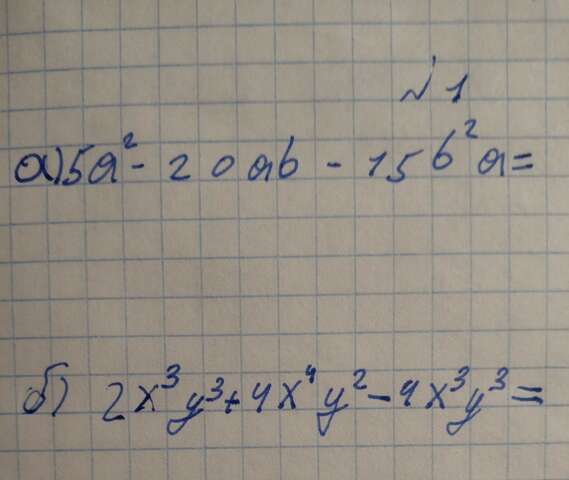 №1
а) 5a² - 20ab - 15b²a =
б) 2x³y³ + 4x⁴y² - 4x³y³ =